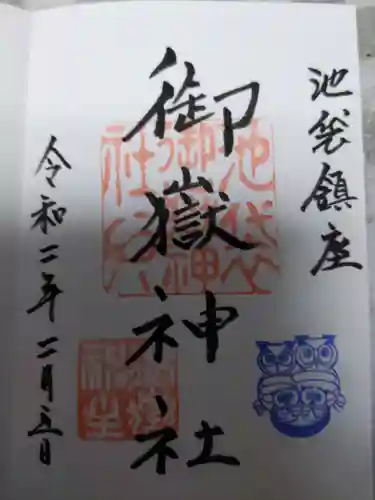 池袋鎮座
御嶽神社
令和二年二月三日
池袋
御嶽神
社印